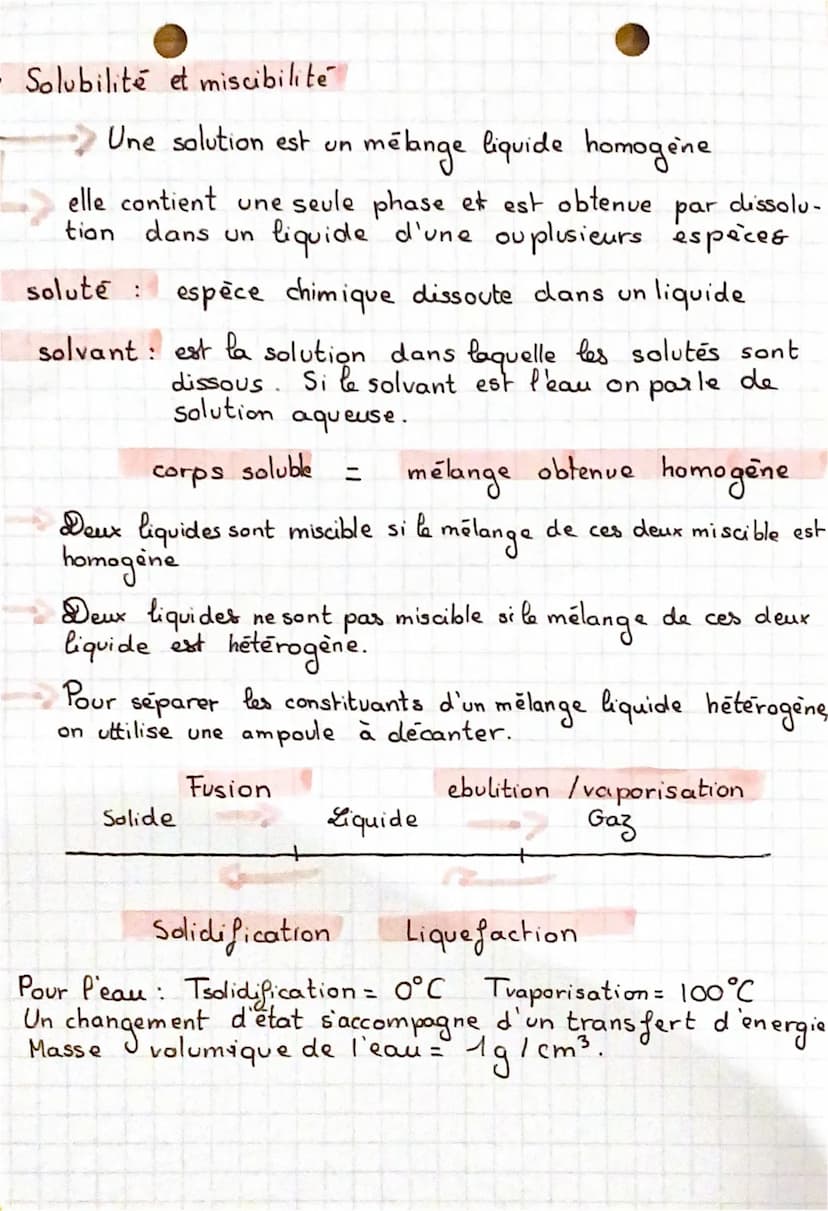 Solubilité et miscibilité
Une solution est un mélange liquide homogène
elle contient une seule phase et est obtenue par dissolu-
tion dans un liquide d'une ou plusieurs espèces
soluté : espèce chimique dissoute dans un liquide
solvant : est la solution dans laquelle les solutés sont
dissous. Si le solvant est l'eau on parle de
solution aqueuse.
corps soluble = mélange obtenue homogène
Deux liquides sont miscible si le mélange de ces deux miscible est
homogène
Deux liquides ne sont pas miscible si le mélange de ces deux
liquide est hétérogène.
Pour séparer les constituants d'un mélange liquide hétérogène,
on uttilise une ampoule à décanter.
Fusion ebulition / vaporisation
Solide Liquide Gaz
Solidification Liquefaction
Pour l'eau : Tsolidification = 0°C Tvaporisation = 100°C
Un changement d'état s'accompagne d'un transfert d'énergie
Masse volumique de l'eau = 1g / cm³.